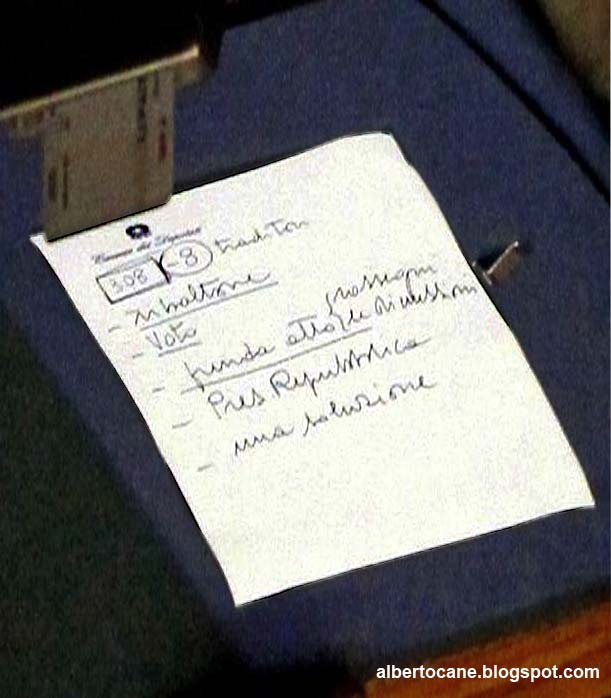 Camera dei Deputati
308 -8 traditori
- ribaltone
- Voto
rassegni
- prenda atto le dimissioni
- Pres Repubblica
- una soluzione
albertocane.blogspot.com